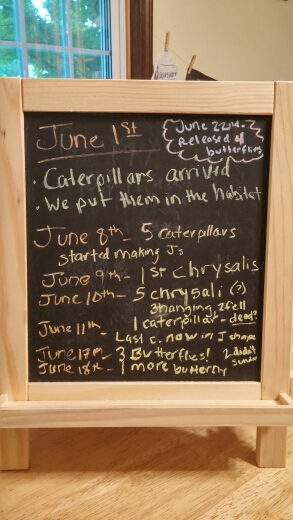 June 1st
June 22nd -
Released 4
butterflies
. Caterpillars arrived
. We put them in the habitat
June 8th - 5 caterpillars
started making Js
June 9th - 1st Chrysalis
June 10th - 5 chrysali (?)
3 hanging, 2 fell
June 11th - 1 caterpillar - dead?
Last c. now in J shape
June 17th - 3 Butterflies! 2 didn't
June 18th - 1 more butterfly survive